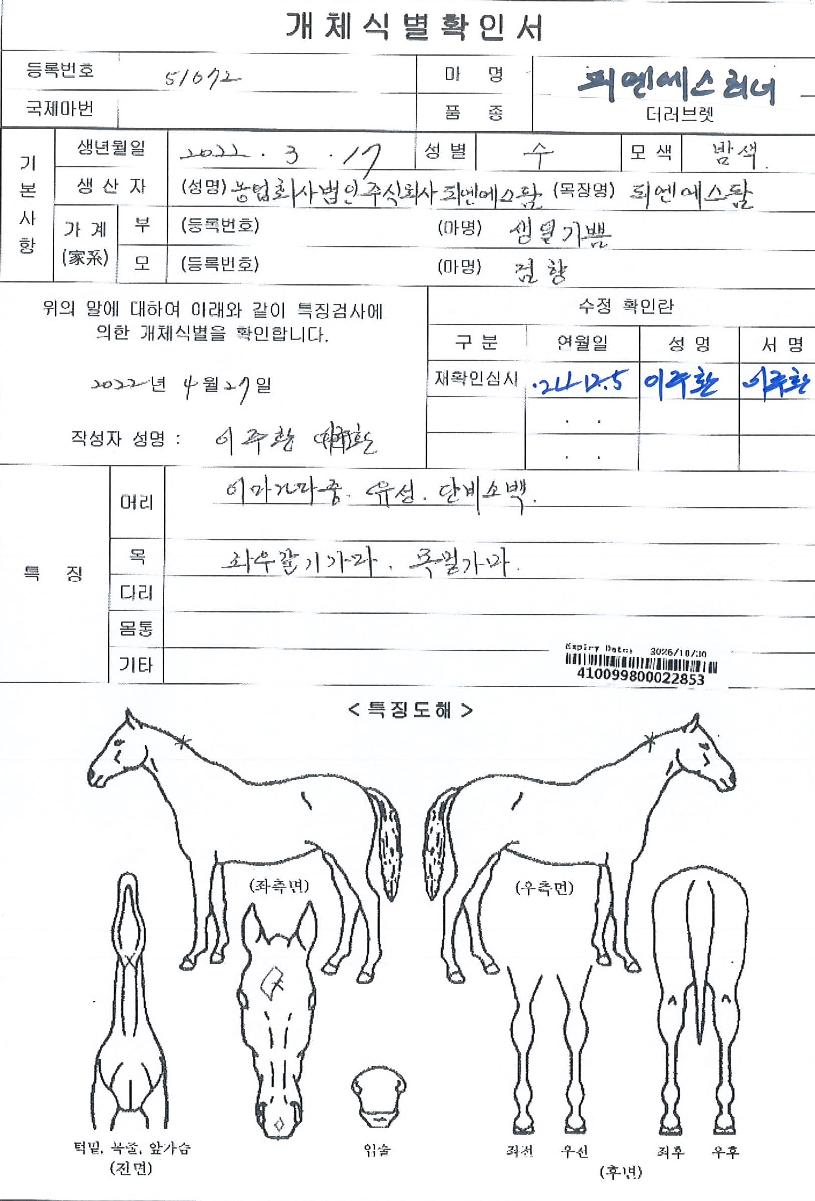 개체식별확인서
등록번호 51072 마 명 피엔에스러너
국제마번 품 종 더러브렛
기본사항
생년월일 2022 . 3 . 17 성 별 수 모 색 밤색
생 산 자 (성명) 농업회사법인주식회사 피엔에스팜 (목장명) 피엔에스팜
가 계 (家系) 부 (등록번호) (마명)
모 (등록번호) (마명)
위의 말에 대하여 아래와 같이 특징검사에
의한 개체식별을 확인합니다.
2022년 4월 27일
작성자 성명 : 이주환
수정 확인란
구 분 연월일 성 명 서 명
재확인심사 이주환 이주환
. .
. .
특 징
머리 이마가마중. 유성. 단비소백.
목 좌우갈기가마. 목밑가마.
다리
몸통
기타
Expiry Date: 2026/10/30
410099800022853
< 특징도해 >
(좌측면) (우측면)
턱밑, 목줄, 앞가슴 입술 좌전 우전 좌후 우후
(전면) (후면)